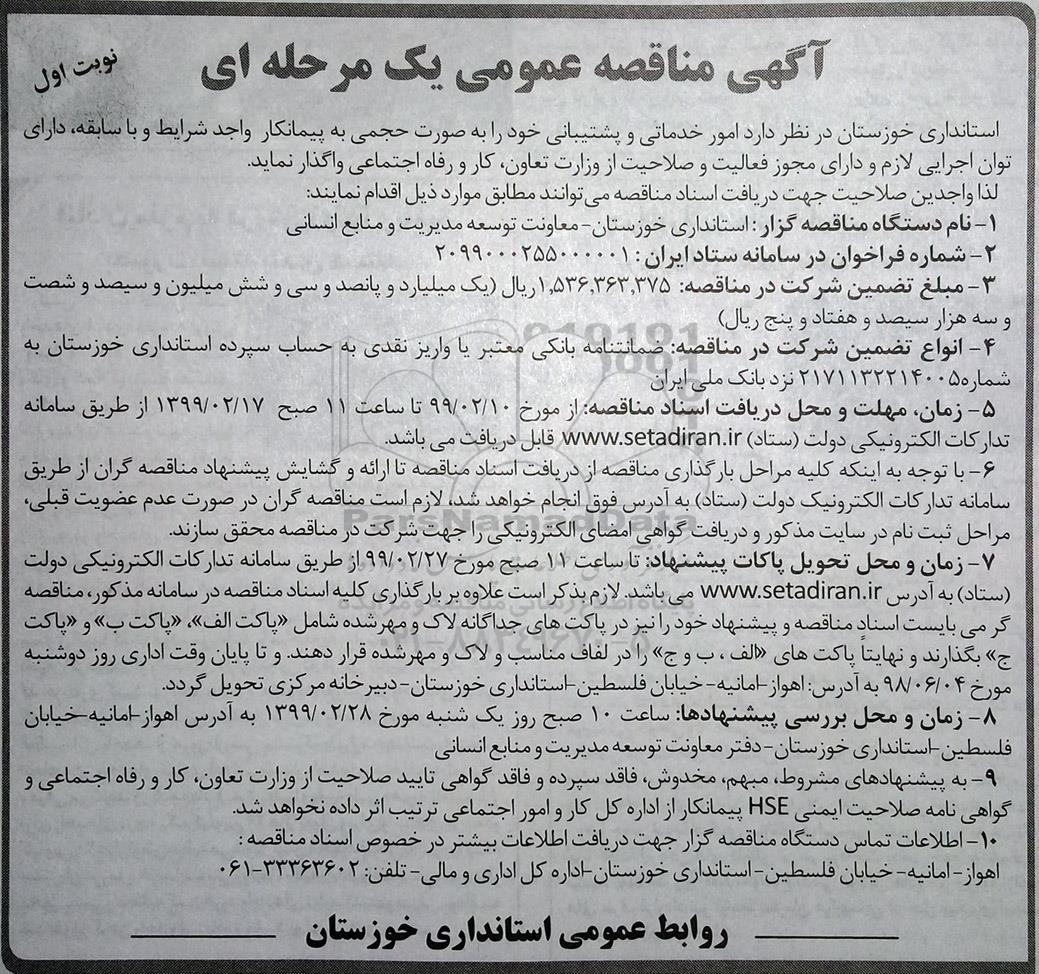 نوبت اول
آگهی مناقصه عمومی یک مرحله ای
استانداری خوزستان در نظر دارد امور خدماتی و پشتیبانی خود را به صورت حجمی به پیمانکار واجد شرایط و با سابقه، دارای
توان اجرایی لازم و دارای مجوز فعالیت و صلاحیت از وزارت تعاون، کار و رفاه اجتماعی واگذار نماید.
لذا واجدین صلاحیت جهت دریافت اسناد مناقصه می‌توانند مطابق موارد ذیل اقدام نمایند:
۱- نام دستگاه مناقصه گزار : استانداری خوزستان- معاونت توسعه مدیریت و منابع انسانی
۲- شماره فراخوان در سامانه ستاد ایران : ۲۰۹۹۰۰۰۲۵۵۰۰۰۰۰۱
۳- مبلغ تضمین شرکت در مناقصه: ۱,۵۳۶,۳۶۳,۳۷۵ ریال (یک میلیارد و پانصد و سی و شش میلیون و سیصد و شصت
و سه هزار سیصد و هفتاد و پنج ریال)
۴- انواع تضمین شرکت در مناقصه: ضمانتنامه بانکی معتبر یا واریز نقدی به حساب سپرده استانداری خوزستان به
شماره ۲۱۷۱۱۳۲۲۱۴۰۰۵ نزد بانک ملی ایران
۵- زمان، مهلت و محل دریافت اسناد مناقصه: از مورخ ۹۹/۰۲/۱۰ تا ساعت ۱۱ صبح ۱۳۹۹/۰۲/۱۷ از طریق سامانه
تدارکات الکترونیکی دولت (ستاد) www.setadiran.ir قابل دریافت می باشد.
۶- با توجه به اینکه کلیه مراحل بارگذاری مناقصه از دریافت اسناد مناقصه تا ارائه و گشایش پیشنهاد مناقصه گران از طریق
سامانه تدارکات الکترونیک دولت (ستاد) به آدرس فوق انجام خواهد شد، لازم است مناقصه گران در صورت عدم عضویت قبلی،
مراحل ثبت نام در سایت مذکور و دریافت گواهی امضای الکترونیکی را جهت شرکت در مناقصه محقق سازند.
۷- زمان و محل تحویل پاکات پیشنهاد: تا ساعت ۱۱ صبح مورخ ۹۹/۰۲/۲۷ از طریق سامانه تدارکات الکترونیکی دولت
(ستاد) به آدرس www.setadiran.ir می باشد. لازم بذکر است علاوه بر بارگذاری کلیه اسناد مناقصه در سامانه مذکور، مناقصه
گر می بایست اسناد مناقصه و پیشنهاد خود را نیز در پاکت های جداگانه لاک و مهر شده شامل «پاکت الف»، «پاکت ب» و «پاکت
ج» بگذارند و نهایتاً پاکت های «الف ، ب و ج» را در لفاف مناسب و لاک و مهر شده قرار دهند. و تا پایان وقت اداری روز دوشنبه
مورخ ۹۸/۰۶/۰۴ به آدرس: اهواز- امانیه- خیابان فلسطین-استانداری خوزستان- دبیرخانه مرکزی تحویل گردد.
۸- زمان و محل بررسی پیشنهادها: ساعت ۱۰ صبح روز یک شنبه مورخ ۱۳۹۹/۰۲/۲۸ به آدرس اهواز-امانیه-خیابان
فلسطین-استانداری خوزستان- دفتر معاونت توسعه مدیریت و منابع انسانی
۹- به پیشنهادهای مشروط، مبهم، مخدوش، فاقد سپرده و فاقد گواهی تایید صلاحیت از وزارت تعاون، کار و رفاه اجتماعی و
گواهی نامه صلاحیت ایمنی HSE پیمانکار از اداره کل کار و امور اجتماعی ترتیب اثر داده نخواهد شد.
۱۰- اطلاعات تماس دستگاه مناقصه گزار جهت دریافت اطلاعات بیشتر در خصوص اسناد مناقصه :
اهواز- امانیه- خیابان فلسطین- استانداری خوزستان-اداره کل اداری و مالی- تلفن: ۳۳۳۶۳۶۰۲-۰۶۱
روابط عمومی استانداری خوزستان
ParsNamadData